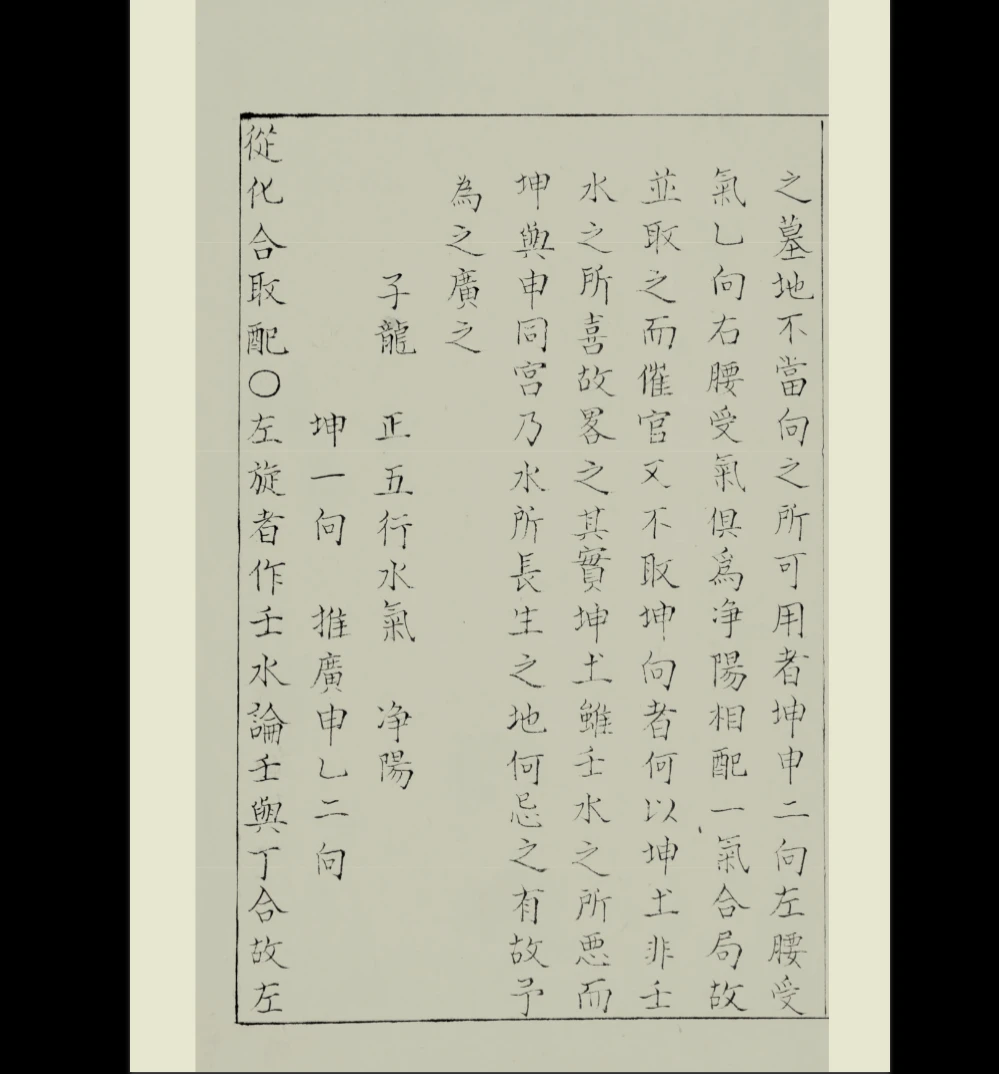 之墓地不當向之所可用者坤申二向左腰受
氣乚向右腰受氣俱爲净陽相配一氣合局故
並取之而催官又不取坤向者何以坤土非壬
水之所喜故畧之其實坤土雖壬水之所惡而
坤與申同宮乃水所長生之地何忌之有故予
為之廣之
子龍　正五行水氣　净陽
坤一向　推廣申乚二向
從化合取配〇左旋者作壬水論壬與丁合故左